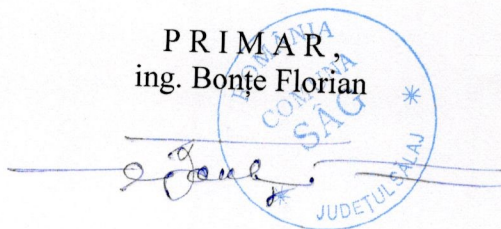 PRIMAR,
ing. Bonțe Florian
ROMÂNIA
COMUNA
SÂG
JUDEȚUL SĂLAJ